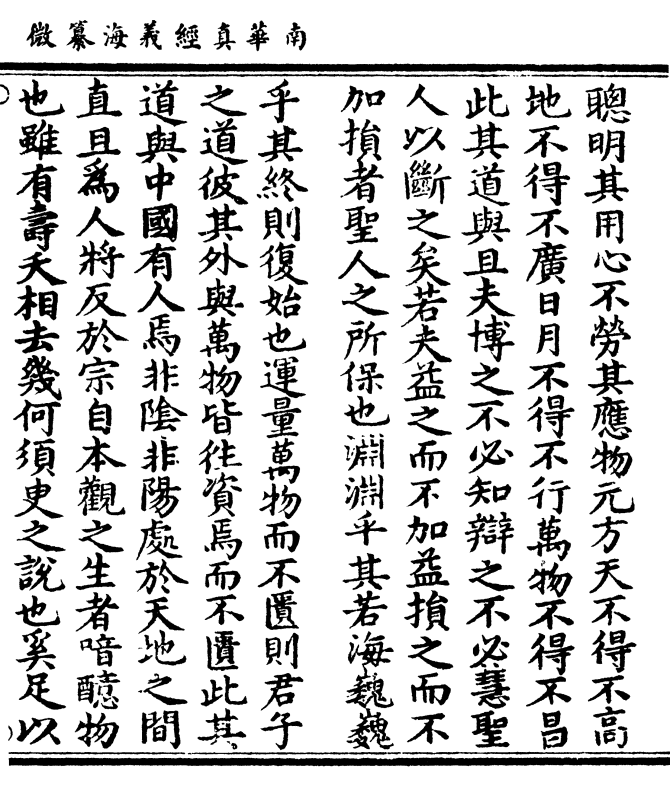 南華真經義海纂微
聰明其用心不勞其應物元方天不得不高
地不得不廣日月不得不行萬物不得不昌
此其道與且夫博之不必知辯之不必慧聖
人以斷之矣若夫益之而不加益損之而不
加損者聖人之所保也淵淵乎其若海巍巍
乎其終則復始也運量萬物而不匱則君子
之道彼其外與萬物皆往資焉而不匱此其
道與中國有人焉非陰非陽處於天地之間
直且為人將反於宗自本觀之生者喑醷物
也雖有壽夭相去幾何須臾之說也奚足以